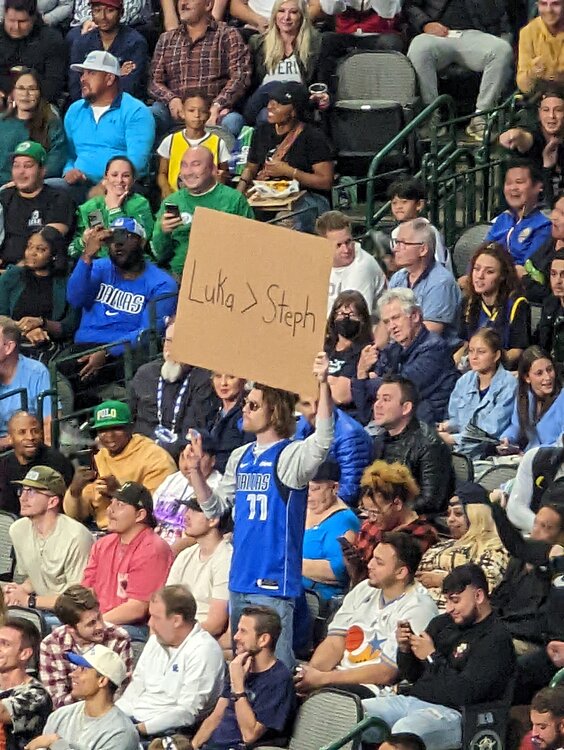 Luka > Steph
DALLAS
DALLAS
77
POLO